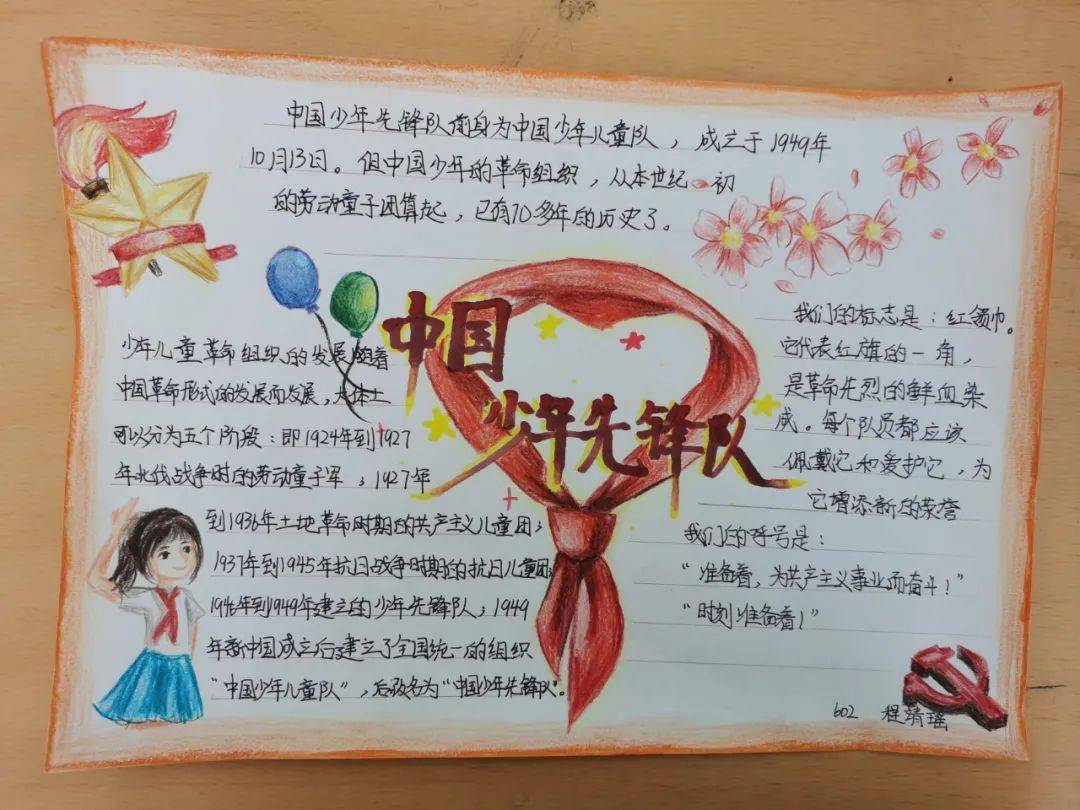 中国少年先锋队前身为中国少年儿童队，成立于1949年
10月13日。但中国少年的革命组织，从本世纪初
的劳动童子团算起，已有70多年的历史了。
中国
少年先锋队
少年儿童革命组织的发展随着
中国革命形式的发展而发展，大体上
可以分为五个阶段：即1924年到1927
年北伐战争时的劳动童子军；1927年
到1936年土地革命时期的共产主义儿童团；
1937年到1945年抗日战争时期的抗日儿童团；
1946年到1949年建立的少年先锋队；1949
年新中国成立后建立了全国统一的组织
“中国少年儿童队”，后改名为“中国少年先锋队”。
我们的标志是：红领巾。
它代表红旗的一角，
是革命先烈的鲜血染
成。每个队员都应该
佩戴它和爱护它，为
它增添新的荣誉
我们的呼号是：
“准备着，为共产主义事业而奋斗！”
“时刻准备着！”
602 程靖瑶